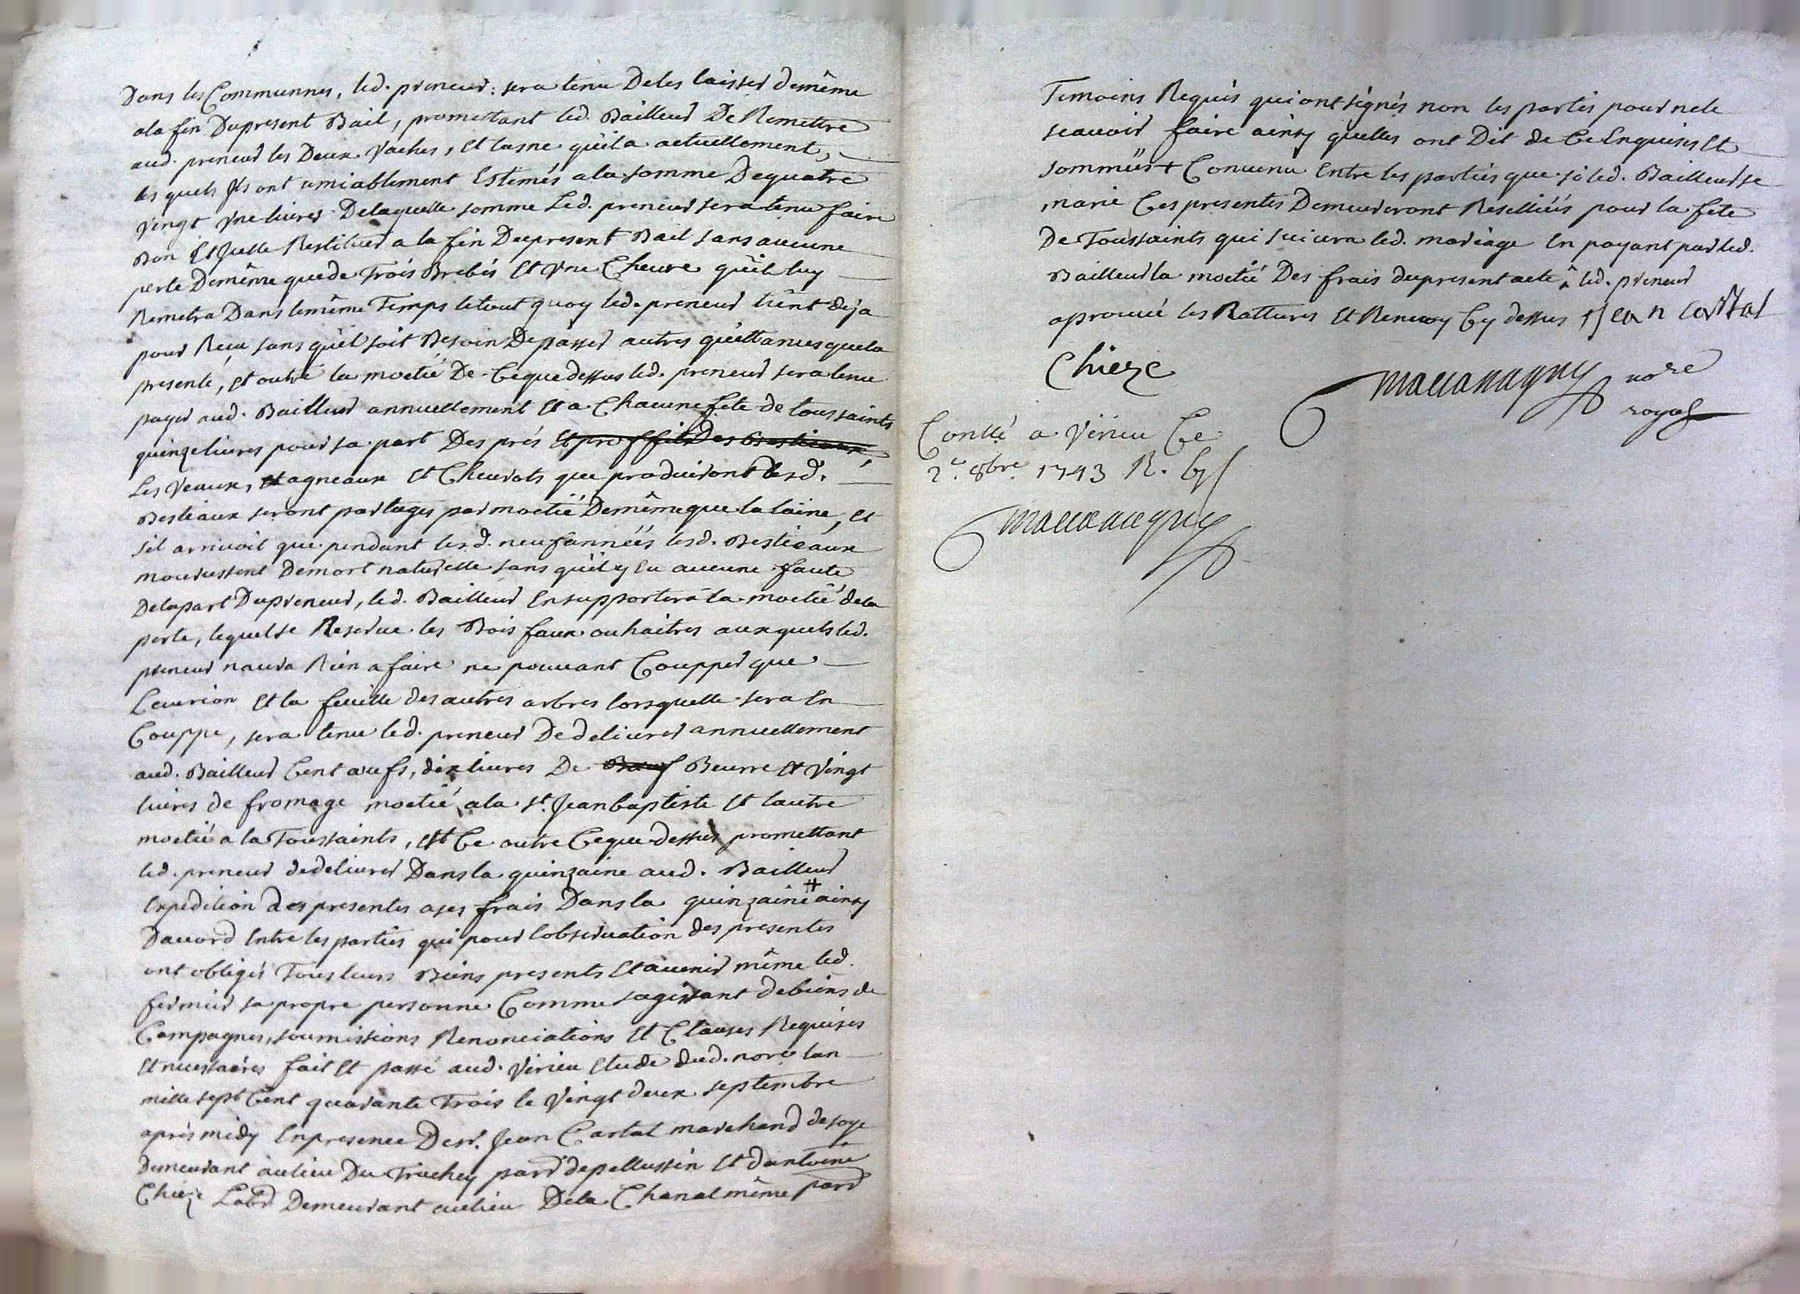 Dans les Communnes, led. preneur sera tenu de les laisser de même
a la fin du present Bail, promettant led. Bailleur De Remettre
aud. preneur les Deux vaches, et lasne quil a actuellement,
les quels ils ont amiablement Estimés a la somme De quatre
vingt une livres De laquelle somme Led. preneur sera tenu faire
Bon Et Juste Restituer a la fin Du present Bail sans aucune
perte De même que de Trois Brebis Et Une Cheure qu'il luy
Remetra Dans le même Temps le tout quoy led. preneur tient deja
pour Recu sans qu'il soit Besoin De passer autres quittances que la
presente, et outre la moetié De Ceque dessus led. preneur sera tenu
payer aud. Bailleur annuellement Et a Chacune fete de toussaints
quinze livres pour sa part Des prés Et proffits Des Bestiaux,
Les Veaux, agneaux Et Cheurots que produiront lesd.
Bestiaux seront partagés par moetié De même que la laine, Et
s'il arrivoit que pendant lesd. neuf années lesd. Bestiaux
mourussent De mort naturelle sans qu'il y Eu aucune faute
De la part Du preneur, led. Bailleur En supportera la moetié de la
perte, lequel se Reserve les Bois faux ou haitres aux quels led.
preneur naura Rien a faire ne pouvant Coupper que
Et la feuille des autres arbres lorsquelle sera En
Couppe, sera tenu led. preneur De delivrer annuellement
aud. Bailleur Cent œufs, dix livres De Beurre Et Vingt
livres de fromage moetié a la st. Jean baptiste Et lautre
moetié a la Toussaints, Et Ce outre Ceque dessus promettant
led. preneur de delivrer Dans la quinzaine aud. Bailleur
Expedition des presentes a ses frais Dans la quinzaine ‡ ainsy
Daccord Entre les parties qui pour lobservation des presentes
ont obligés Tous leurs Biens presents Et avenir même led.
fermier sa propre personne Comme sagissant de biens de
Campagnes, soumissions Renonciations Et Clauses Requises
Et necessaires fait Et passé aud. Virieu Etude dud. nore lan
mille sept Cent quarante Trois le Vingt deux septembre
apres midy En presence De sr. Jean Cartal marchand de soye
Demeurant au lieu Du Truchey parr de pellussin Et dantoine
Chieze Labr Demeurant au lieu De la Chanal même parr
Temoins Requis qui ont signés non les parties pour ne le
scauoir faire ainsy quelles ont Dit de Ce Enquises Et
sommées ‡ Convenu Entre les parties que si led. Bailleur se
marie Ces presentes Demeureront Resiliées pour la fete
De Toussaints qui suivra led. mariage En payant par led.
Bailleur la moetié Des frais du present acte a led. preneur
aprouvé les Rattures Et Renvoy Cy dessus Jean Cartal
Chieze
nore
royal
Conllé a Virieu Ce
2e. 8bre. 1743 R.